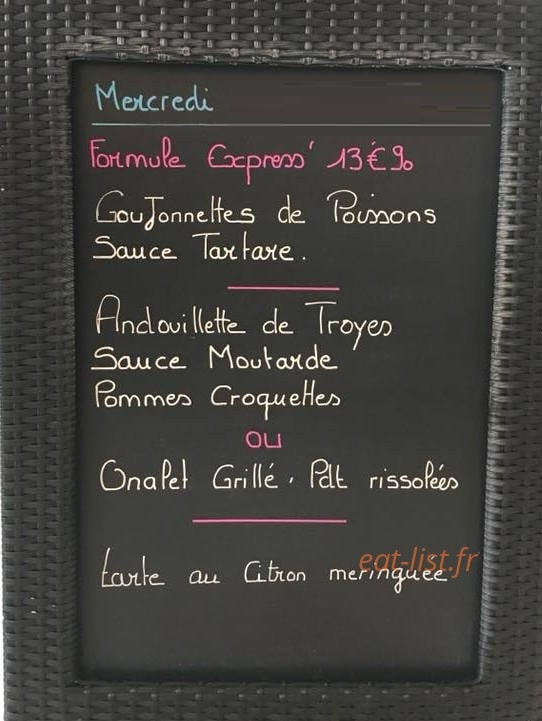 Mercredi
Formule Express' 13€90
GouJonnettes de Poissons
Sauce Tartare.
Andouillette de Troyes
Sauce Moutarde
Pommes Croquettes
ou
Onglet Grillé. Pdt rissolées
tarte au Citron meringuée
eat-list.fr